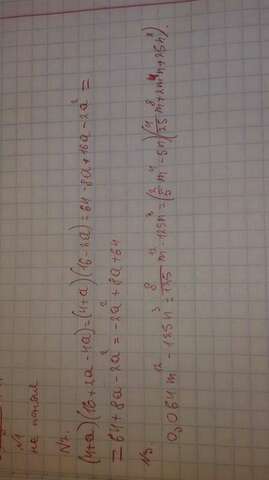 №1
не понял
№2.
(4+a)(16+2a-4a)=(4+a)(16-2a)=64-8a+16a-2a²=
=64+8a-2a²=-2a²+8a+64
№3
0,064m¹²-125n³=8/125m¹²-125n³=(2/5m⁴-5n)(4/25m⁸+2m⁴n+25n²).